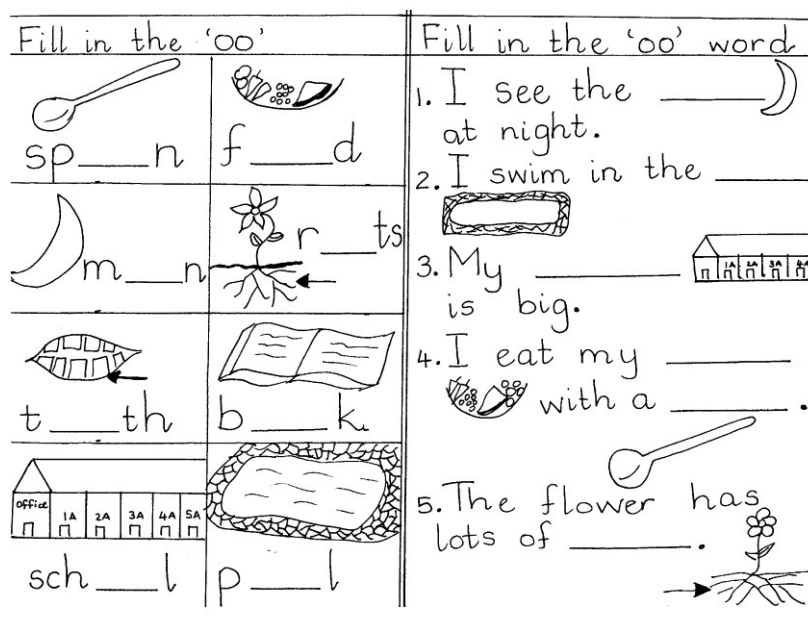 Fill in the 'oo'
sp____n
f____d
m____n
r____ts
t____th
b____k.
Office 1A 2A 3A 4A 5A
sch____l
p____l
Fill in the 'oo' word
1. I see the ________
at night.
2. I swim in the ________
3. My ________
1A 2A 3A 4A
is big.
4. I eat my ________
with a ________.
5. The flower has
lots of ________.